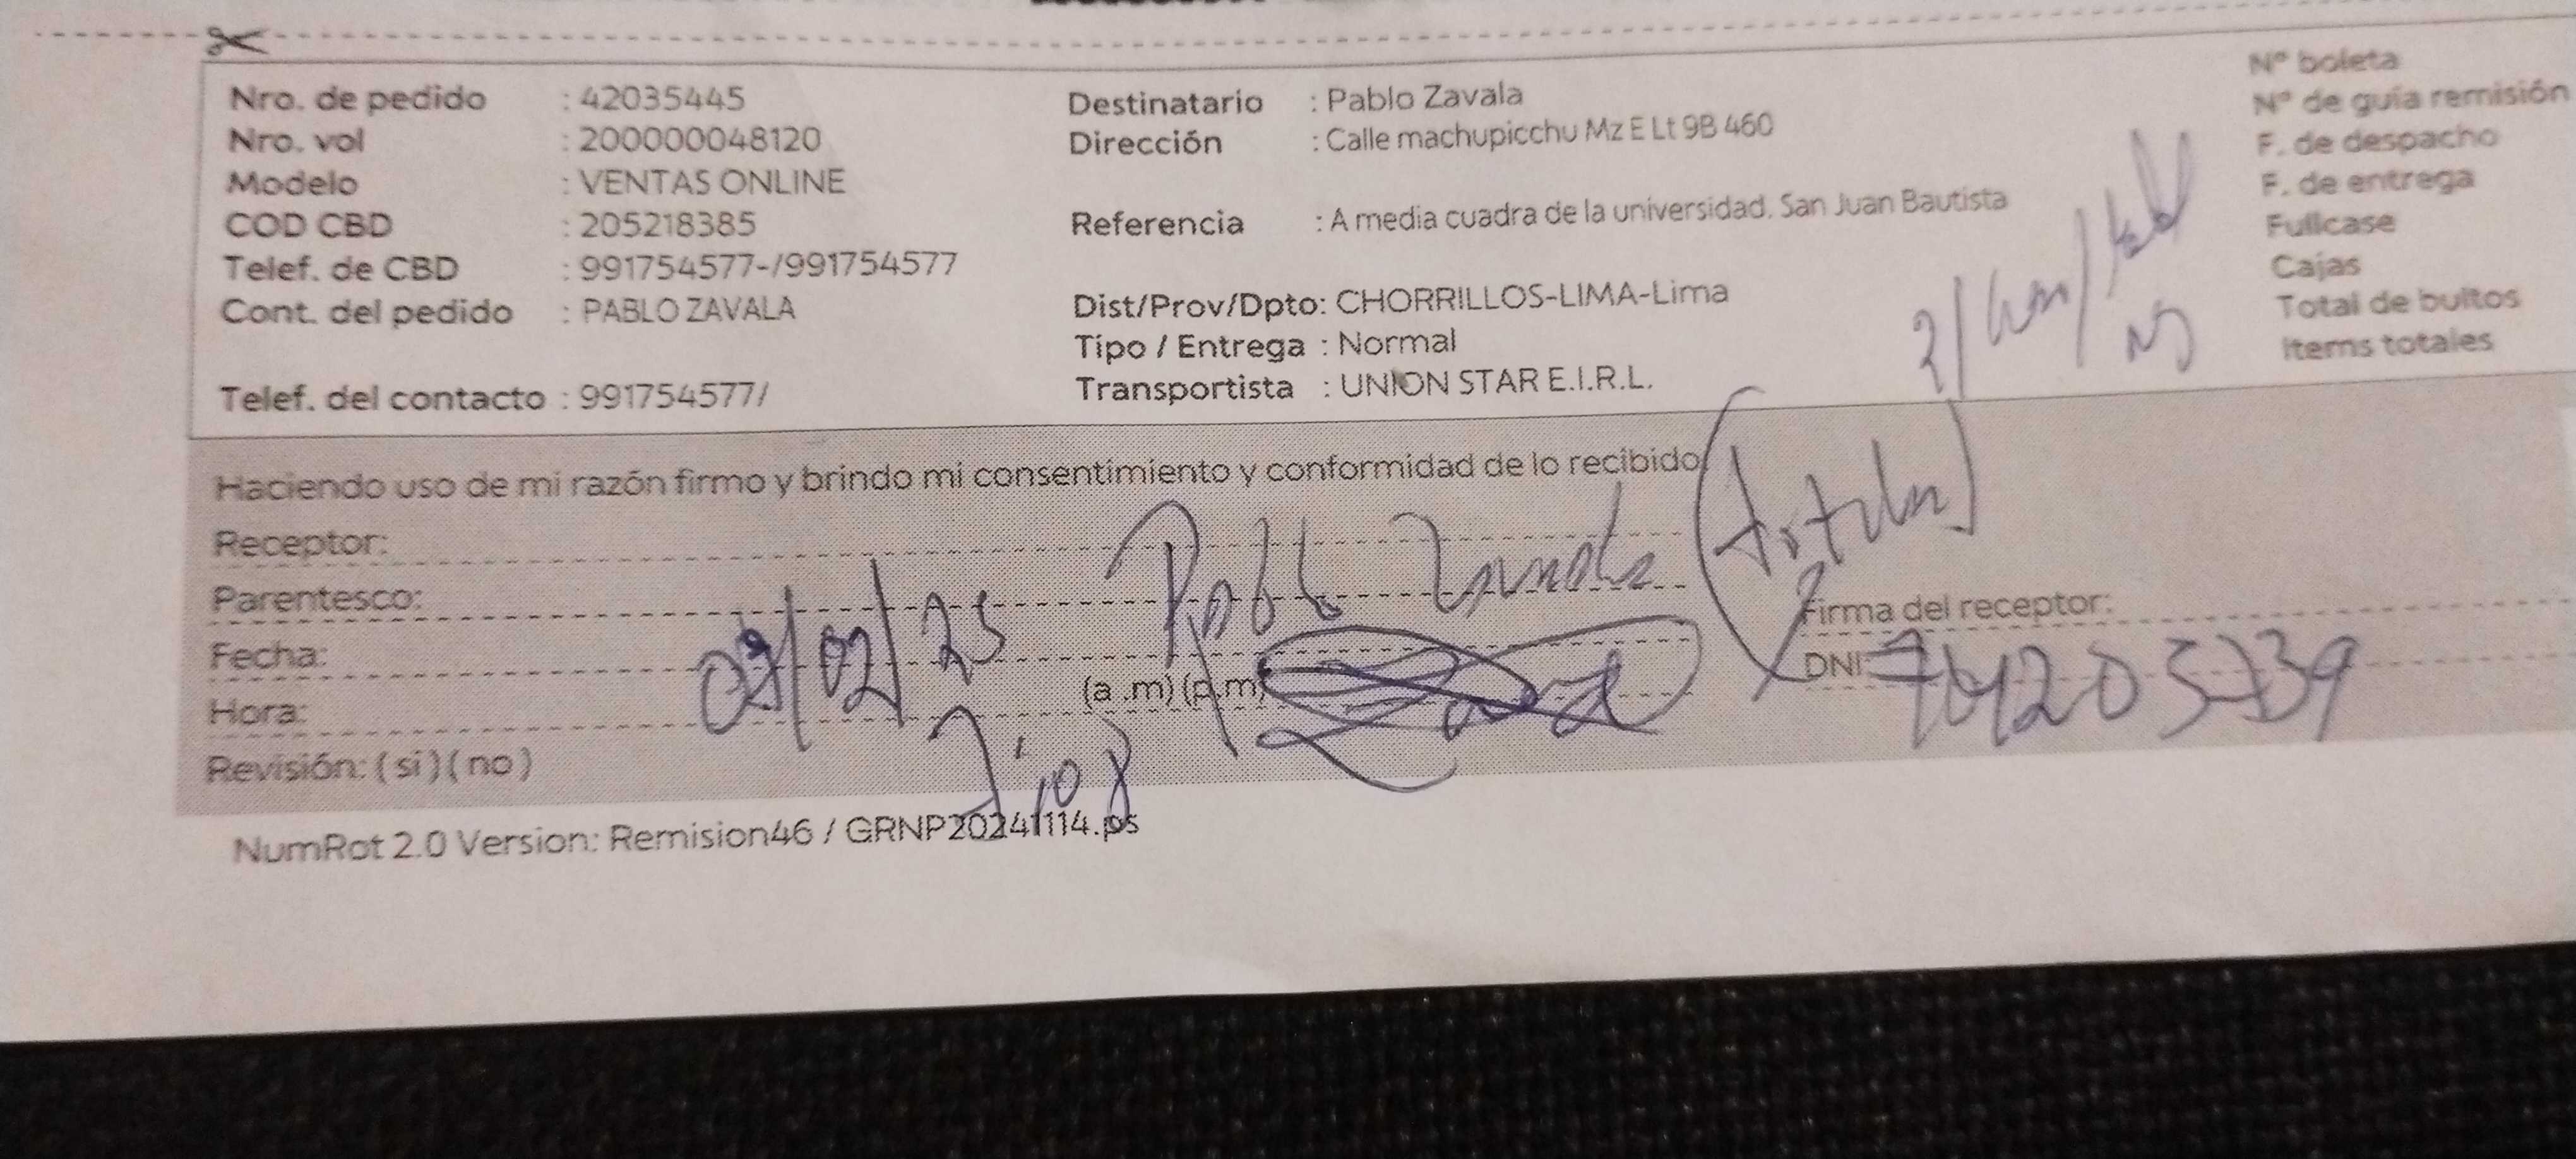 Nro. de pedido : 42035445
Nro. vol : 200000048120
Modelo : VENTAS ONLINE
COD CBD : 205218385
Telef. de CBD : 991754577-/991754577
Cont. del pedido : PABLO ZAVALA
Telef. del contacto : 991754577/
Destinatario : Pablo Zavala
Dirección : Calle machupicchu Mz E Lt 9B 460
Referencia : A media cuadra de la universidad. San Juan Bautista
Dist/Prov/Dpto: CHORRILLOS-LIMA-Lima
Tipo / Entrega : Normal
Transportista : UNION STAR E.I.R.L.
N° boleta
N° de guía remisión
F. de despacho
F. de entrega
Fullcase
Cajas
Total de bultos
Items totales
Haciendo uso de mi razón firmo y brindo mi consentimiento y conformidad de lo recibido
Receptor: Pablo Zavala
Parentesco:
Fecha: /02/25
Hora: (a .m) (p.m)
Revisión: ( si ) ( no )
Firma del receptor:
DNI:
NumRot 2.0 Version: Remision46 / GRNP20241114.ps